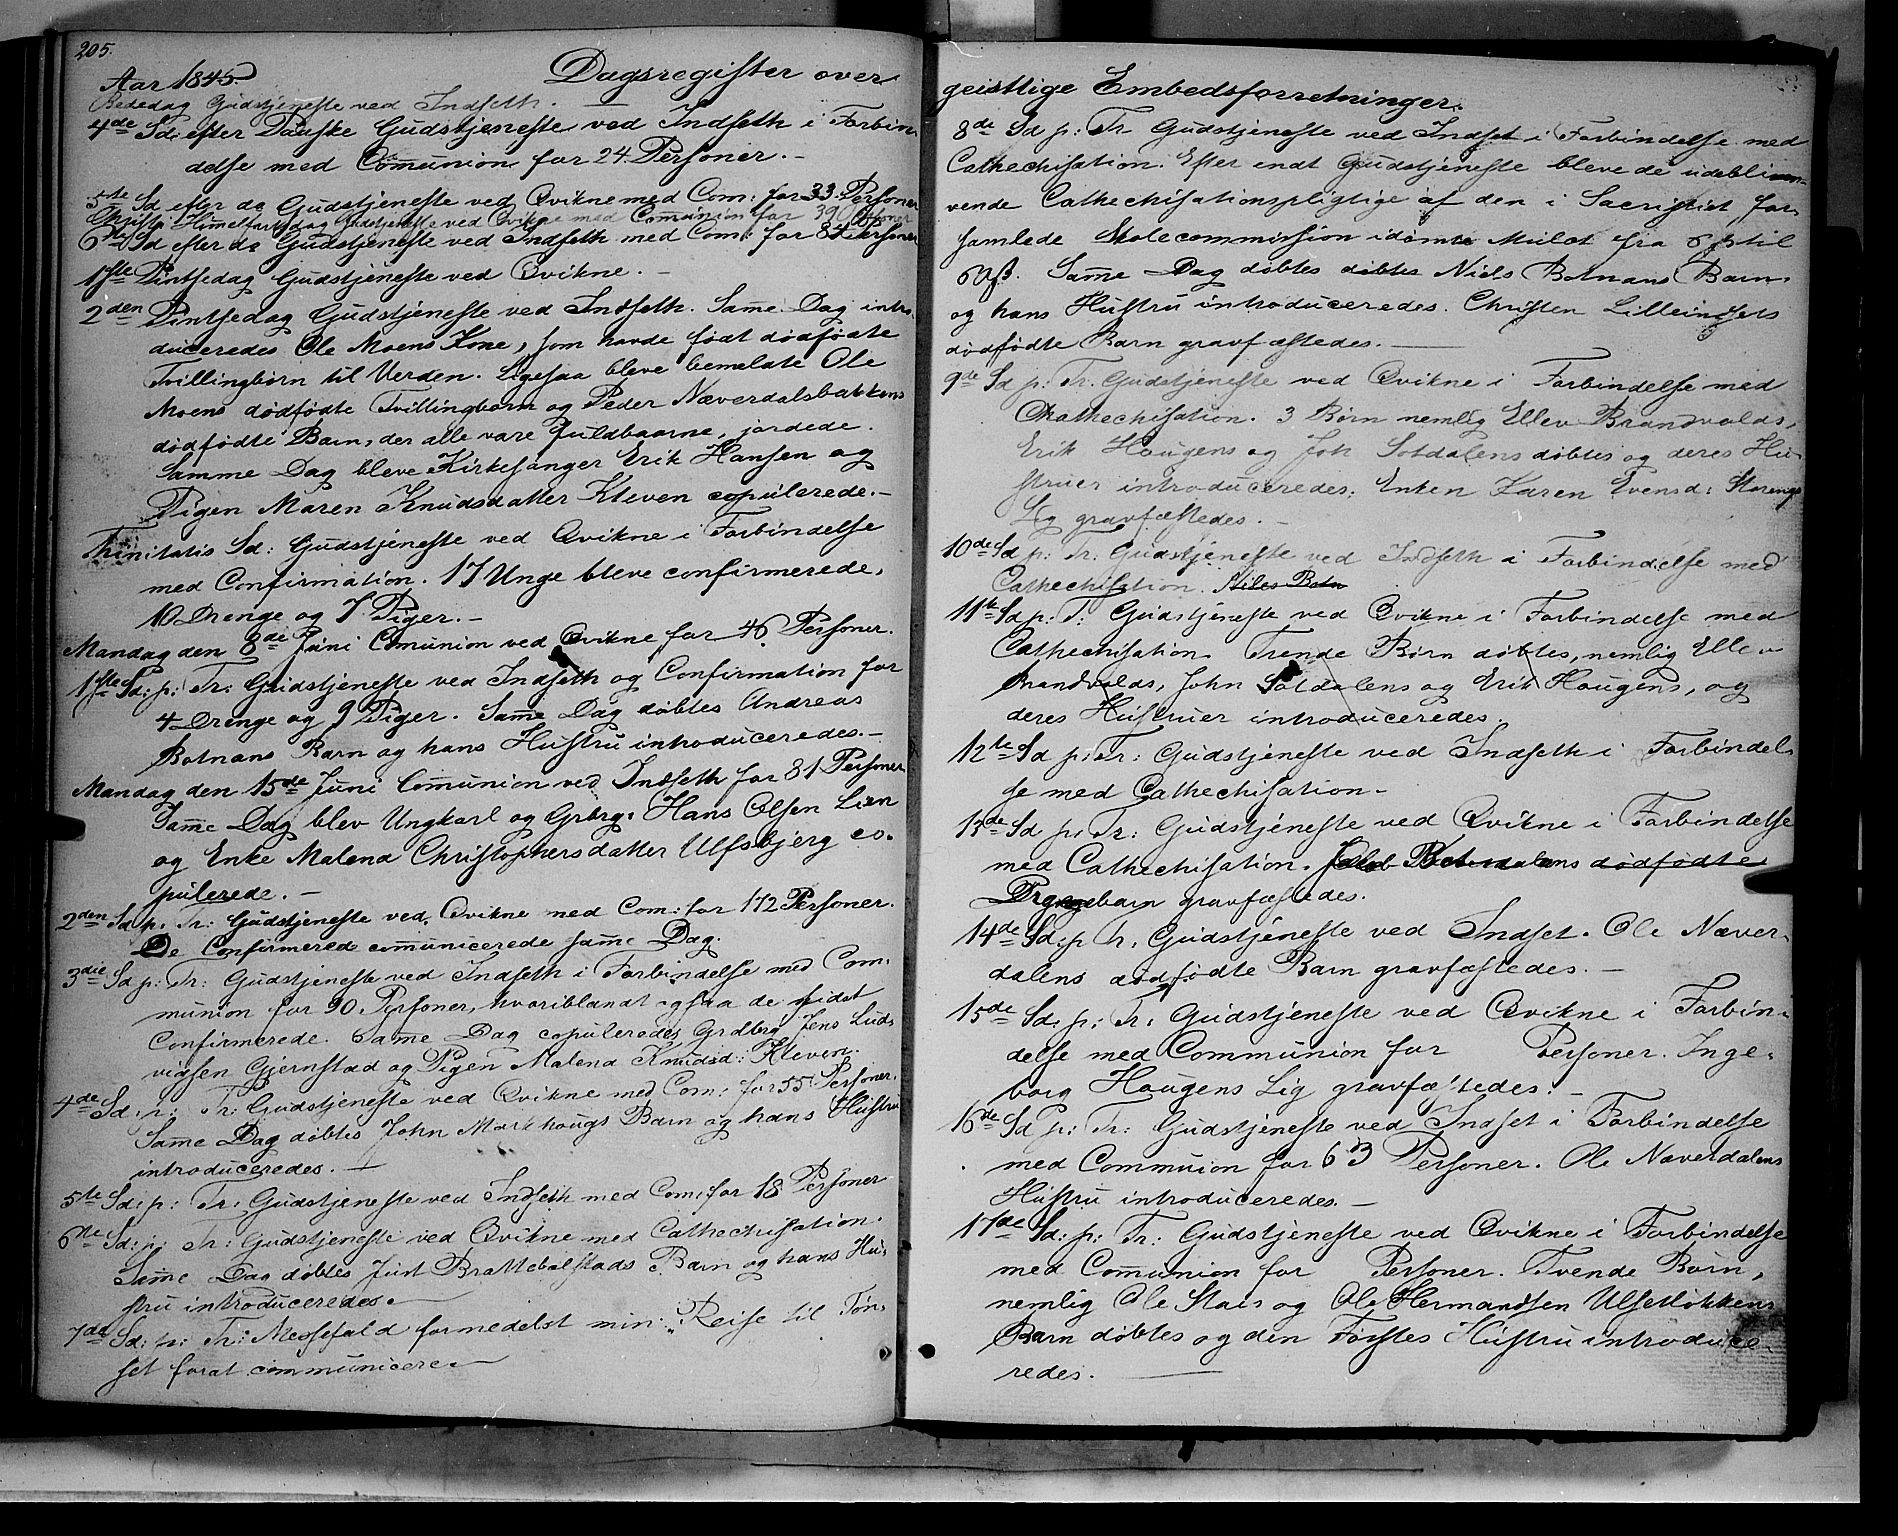 205.
Aar 1845
Dagsregister over
Bededag Gudstjeneste ved Indseth. —
4de Sd. efter Paaske Gudstjeneste ved Indseth i Forbin-
delse med Communion for 24 Personer. –
5te Sd efter do Gudstjeneste ved Qvikne med Com: for 33 Personer
Christi Himmelfartsdag Gudstjeneste ved Qvikne med Comunion for 39 Personer
6te Sd efter do Gudstjeneste ved Indseth med Com: for 84 Personer
1ste Pintsedag Gudstjeneste ved Qvikne. –
2den Pintsedag Gudstjeneste ved Indseth. Same Dag intro-
duceredes Ole Moens Kone, som havde født dødfødte
Tvillingbørn til Verden. Ligesaa bleve bemeldte Ole
Moens dødfødte Tvillingbørn og Peder Næverdalsbakkens
dødfødte Barn, der alle vare fuldbaarne, jordede.
Samme Dag bleve Kirkesanger Erik Hansen og
Pigen Maren Knudsdatter Kleven copulerede. –
Trinitatis Sd: Gudstjeneste ved Qvikne i Forbindelse
med Confirmation. 17 Unge bleve confirmerede,
10 Drenge og 7 Piger. –
Mandag den 8de Juni Comunion ved Qvikne for 46 Personer.
1ste Sd: p: Tr: Gudstjeneste ved Indseth og Confirmation for
4 Drenge og 9 Piger. Same Dag døbtes Andreas
Botnans Barn og hans Hustru introduceredes. –
Mandag den 15de Juni Communion ved Indseth for 81 Personer
Same Dag blev Ungkarl og Grbrg: Hans Olsen Lien
og Enke Malena Christophersdatter Ulfsbjerg co-
pulerede. –
2den Sd p. Tr: Gudstjeneste ved Qvikne med Com: for 112 Personer.
De Confirmerede comunicerede same Dag.
3die Sd p: Tr: Gudstjeneste ved Indseth i Forbindelse med Com-
munion for 90 Personer, hvoriblandt ogsaa de sidst
Confirmerede. Same Dag copuleredes Grdbrg Jens Lud-
vigsen Gjernstad og Pigen Malena Knudsd: Kleven.
4de Sd. p: Tr: Gudstjeneste ved Qvikne med Com: for 55 Personer.
Same Dag døbtes John Morkhougs Barn og hans Hustru
introduceredes. —
5te Sd: p: Tr: Gudstjeneste ved Indseth med Com: for 18 Personer
6te Sd: p: Tr: Gudstjeneste ved Qvikne med Cathechisation.
Same Dag døbtes Brattebalstads Barn og hans Hu-
stru introduceredes.
7de Sd: p: Tr: Messefald formedelst min Reise til Tøn-
set forat communicere —
geistlige Embedsforretninger.
8de Sd p: Tr Gudstjeneste ved Indset i Forbindelse med
Cathechisation. Efter endt Gudstjeneste bleve de udebli-
vende Cathechisationspligtige af den i Sacristiet for-
samlede Skolecommission idømte Mulct fra 6 ß til
Same Dag døbtes døbtes Niels Botnans Barn
og hans Hustru introduceredes. Christen Lilleindsets
dødfødte Barn gravfæstedes. —
9de Sd p: Tr. Gudstjeneste ved Qvikne i Forbindelse med
Chathechisation. 3 Børn nemlig Ellev Brandvolds,
Erik Hougens og Joh Soldalens døbtes og deres Hu-
struer introduceredes. Enken Karen Evensd: Storengs
Lig gravfæstedes. –
10de Sd p: Tr: Gudstjeneste ved Indseth i Forbindelse med
Cathechisation. Niles Botn
11te Sd p: T: Gudstjeneste ved Qvikne i Forbindelse med
Cathechisation. Trende Børn døbtes, nemlig Ellev
Brandvolds, John Soldalens og Erik Hougens, og
deres Hustruer introduceredes.
12te Sd p: Tr: Gudstjeneste ved Indseth i Forbindel-
se med Cathechisation –
13de Sd p: Tr: Gudstjeneste ved Qvikne i Forbindelse
med Cathechisation. dødfødte
Drengebarn gravfæstedes.
14de Sd: p Tr. Gudstjeneste ved Indset. Ole Næver-
dalens dødfødte Barn gravfæstedes. –
15de Sd: p: Tr: Gudstjeneste ved Qvikne i Forbin-
delse med Communion for Personer. Inge-
borg Hougens Lig gravfæstedes. –
16de Sd p: Tr: Gudstjeneste ved Indset i Forbindelse
med Commuion for 63 Personer. Ole Næverdalens
Hustru introduceredes. –
17de Sd: p: Tr: Gudstjeneste ved Qvikne i Forbindelse
med Communion for Personer. Tvende Børn,
nemlig Ole Stais og Ole Hermandsen Ulsetløkkens
Barn døbtes og den Førstes Hustru introduce-
redes. —